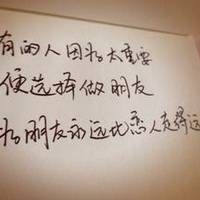 有的人因为太重要
便选择做朋友
为朋友永远比恋人走得远